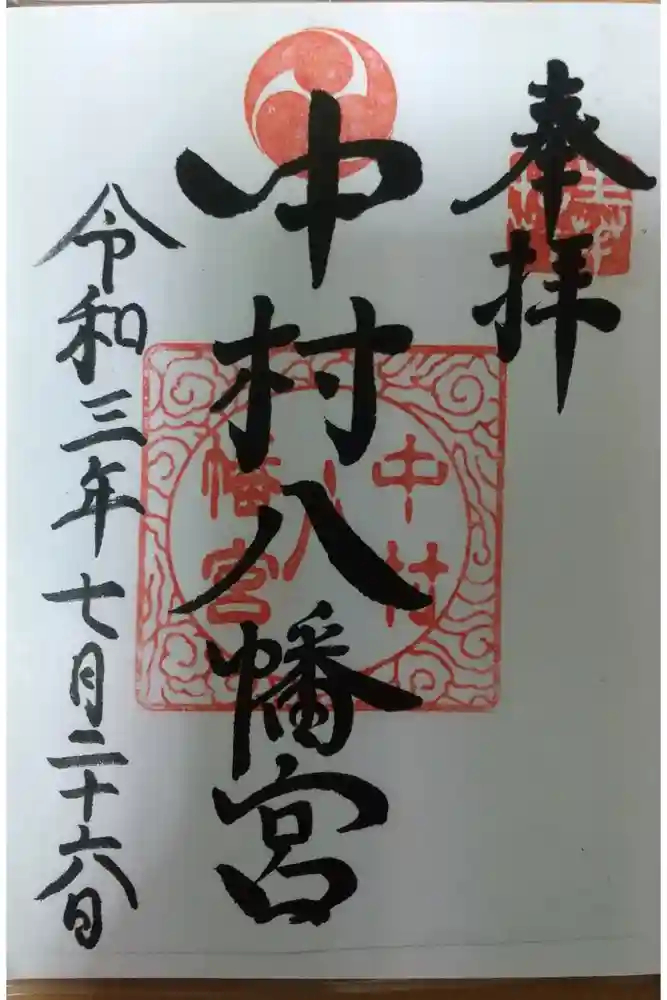 奉拝
中村八幡宮
令和三年七月二十六日
中村
八
幡宮